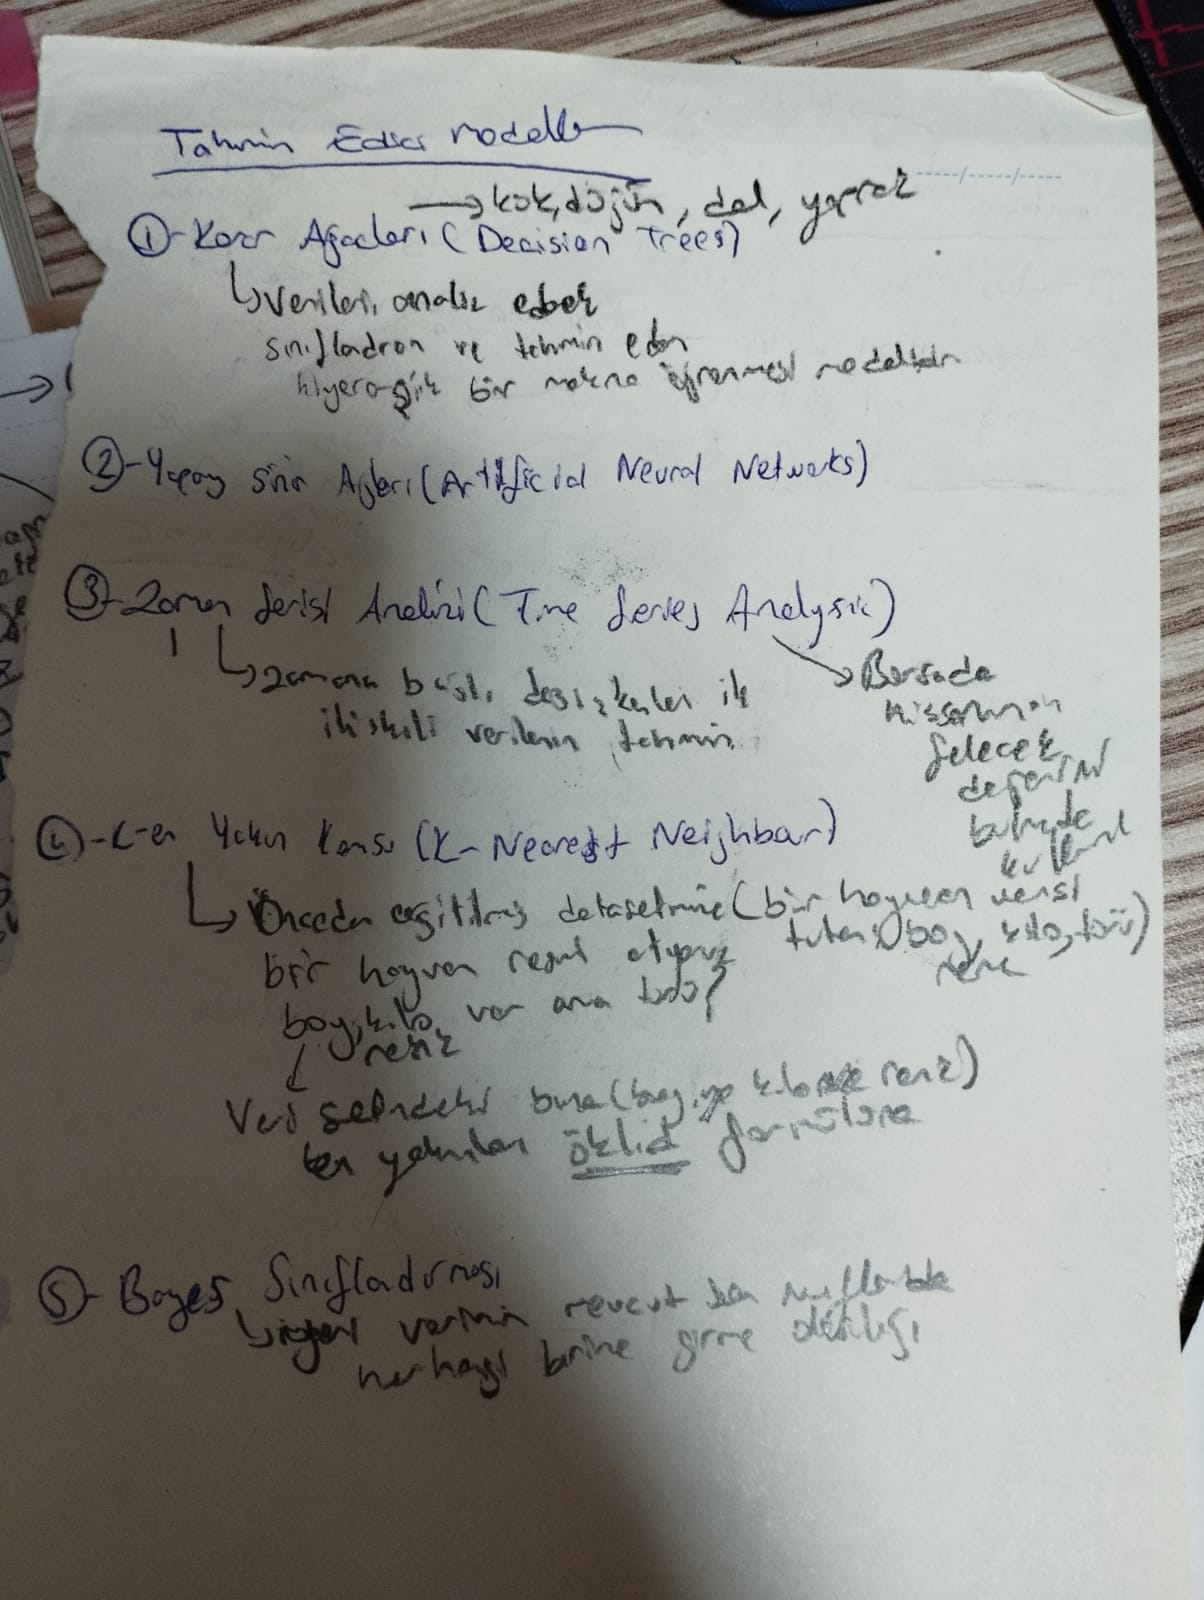 Tahmin Edici modeller
→ kök, düğüm, dal, yaprak
①- Karar Ağaçları (Decision Trees)
↳ verileri analiz ederek
sınıfladıran ve tahmin eden
hiyerarşik bir makine öğrenmesi modelidir
②- Yapay Sinir Ağları (Artificial Neural Networks)
③- Zaman Serisi Analizi (Time Series Analysis)
↳ zamana bağlı değişkenler ile
ilişkili verilerin tahmini
→ Borsada
hissenin
gelecek
değerini
bulmada
④- K-en Yakın Komşu (K-Nearest Neighbor)
↳ Önceden eğitilmiş datasetine (bir hayvan verisi
tutan boy, kilo, türü)
renk
bir hayvan resmi atıyoruz
boy, kilo, var ama türü?
renk
Veri setindeki buna (boy, kilo renk)
en yakınları öklid formülüne
⑤- Bayes Sınıfladırması
↳ verinin mevcut
herhangi birine girme olasılığı